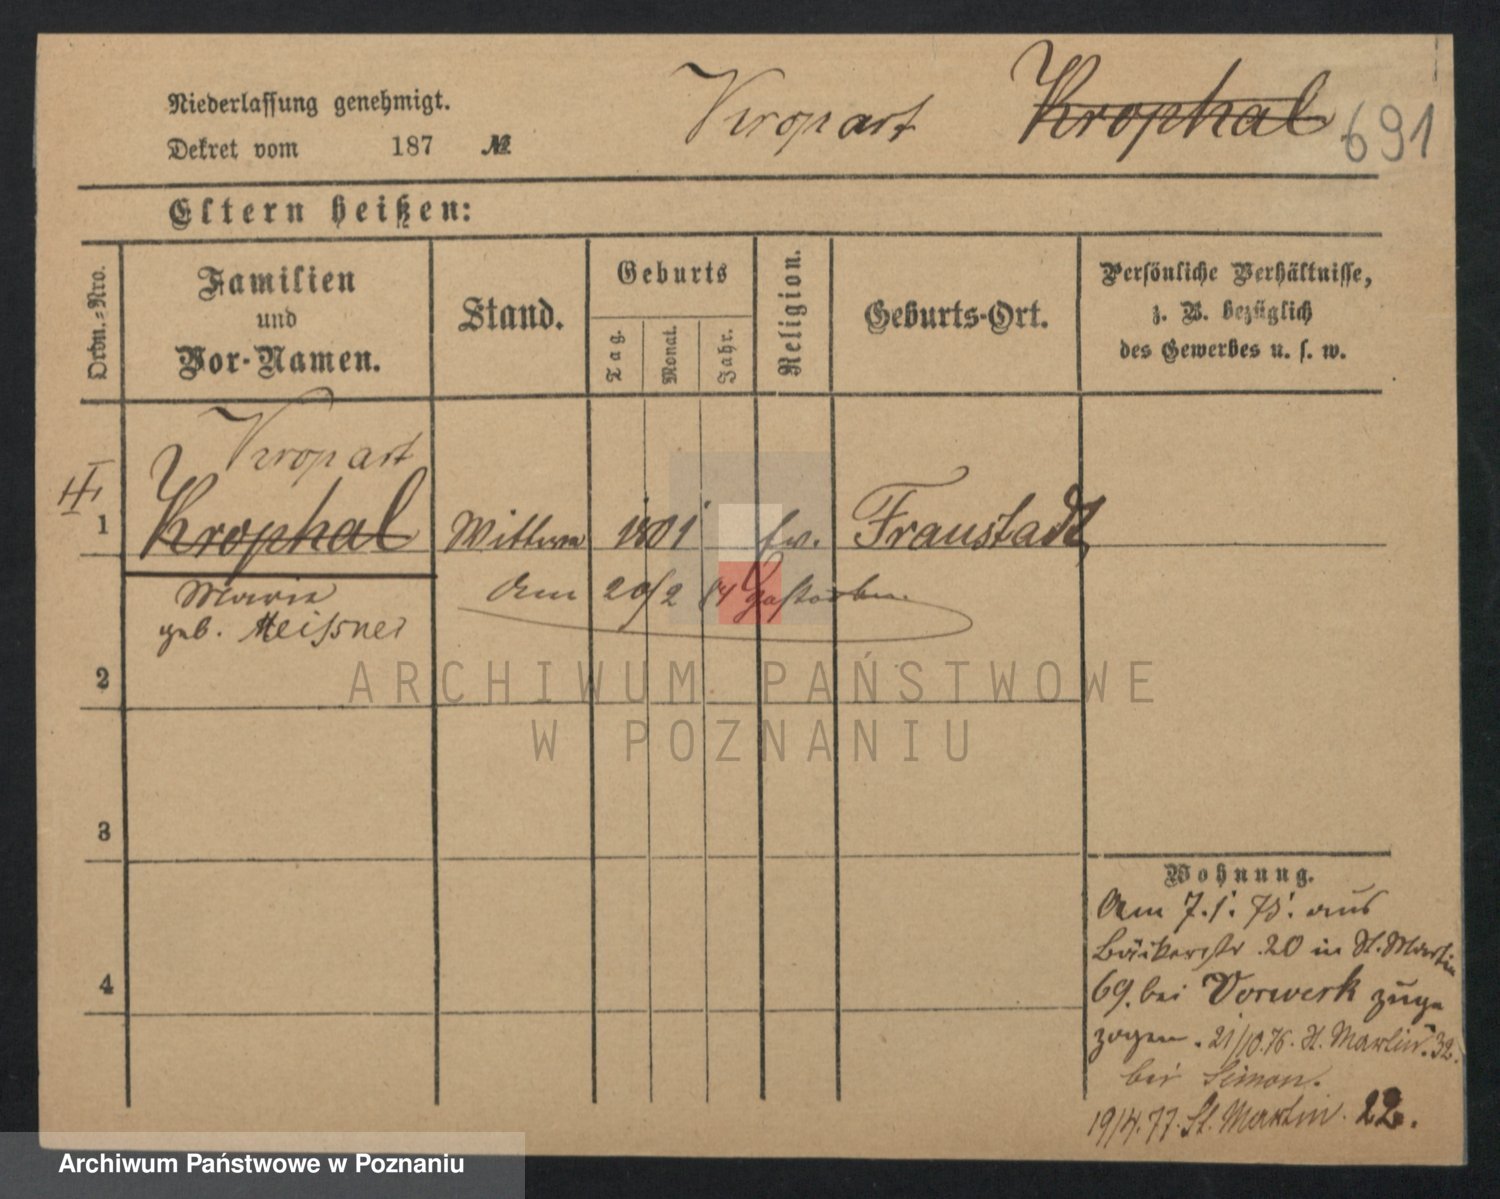 Niederlassung genehmigt.
Dekret vom 187 №
Kropart Krophal 691
Eltern heißen:
Ordn.-Nro.
Familien
und
Vor-Namen.
Stand.
Geburts
Tag.
Monat.
Jahr.
Religion.
Geburts-Ort.
Persönliche Verhältnisse,
z. B. bezüglich
des Gewerbes u. s. w.
Kropart
1 Krophal Wittwe 1801 ev. Fraustadt
Marie Am 20/2 84 gestorben.
geb. Meissner
2
3
4
Wohnung.
Am 7.1. 75. aus
Bäckerstr. 20 in St. Martin
69. bei Vorwerk zuge
zogen. 21/10.76. St. Martin. 32.
bei Simon.
19/4.77. St. Martin. 22.
ARCHIWUM PAŃSTWOWE
W POZNANIU
Archiwum Państwowe w Poznaniu